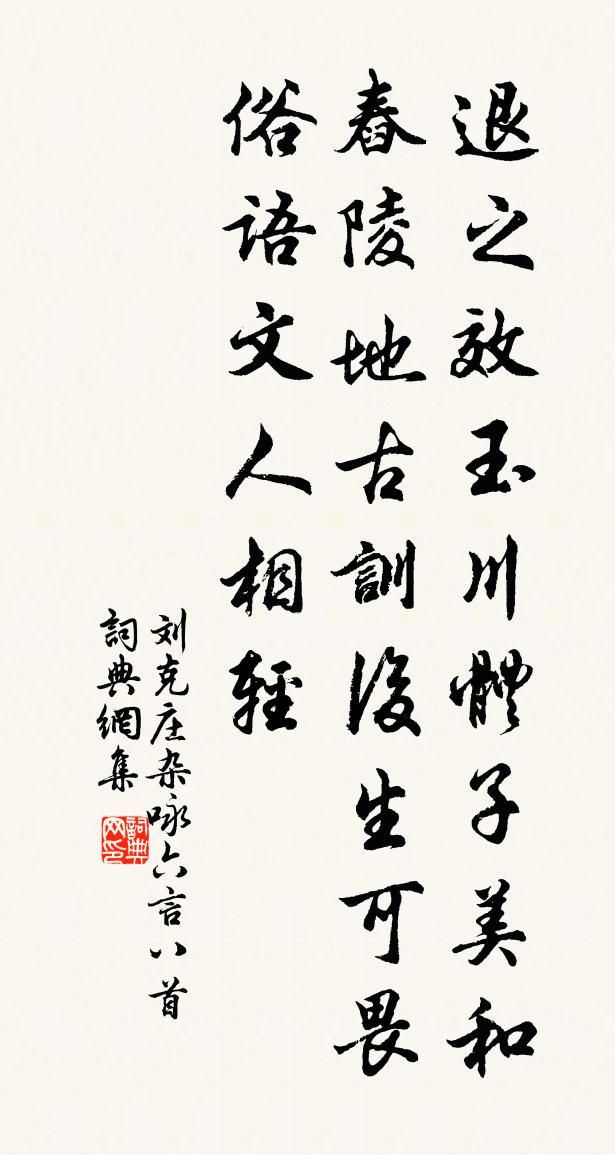 退之效玉川體子美和
舂陵地古訓後生可畏
俗語文人相輕
刘克庄杂咏六言八首
詞典網集
詞典網印